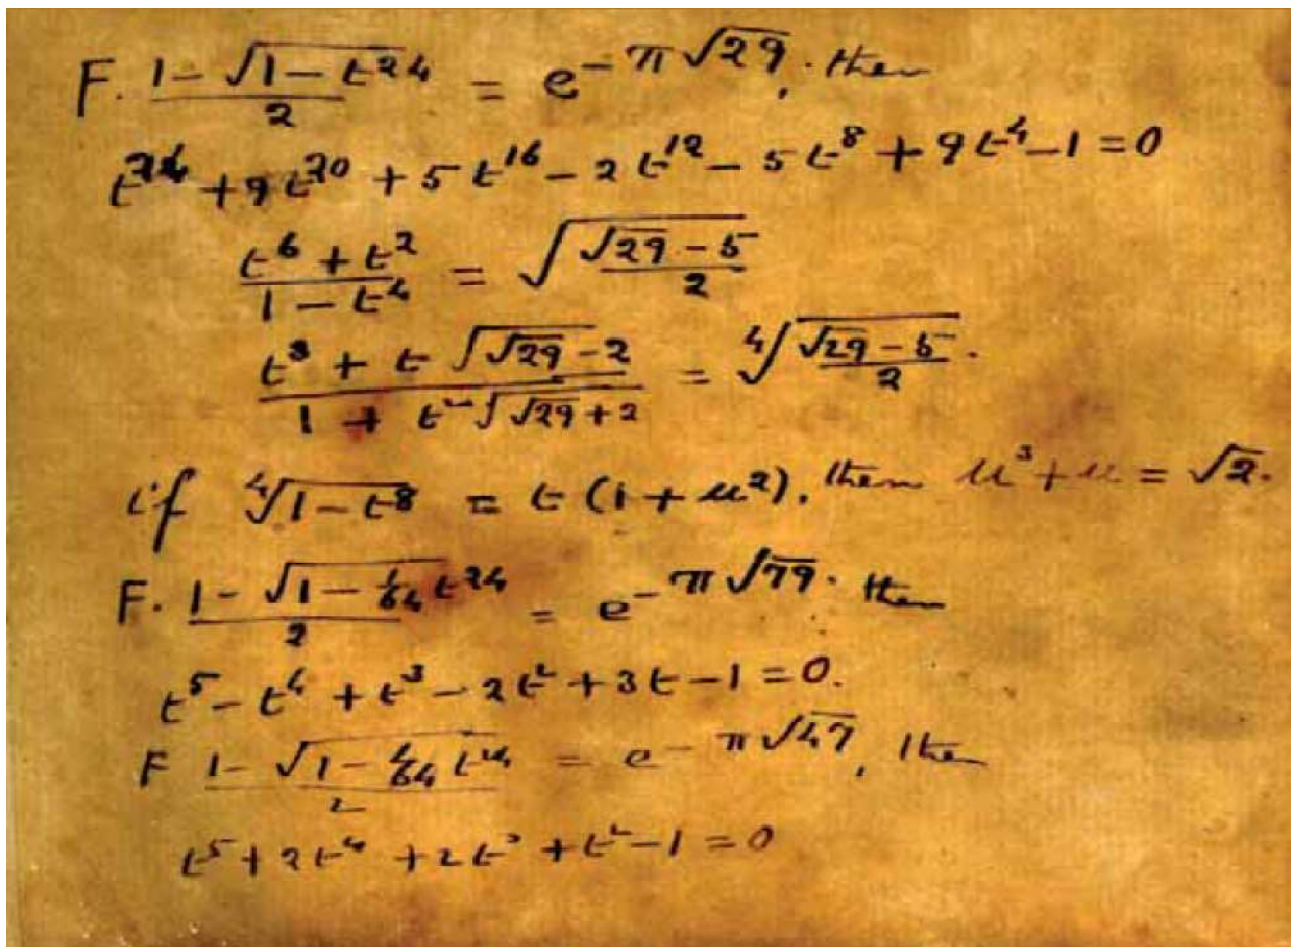 F. (1 - √(1 - t²⁴))/2 = e^(-π√29). then
t²⁴ + 9t²⁰ + 5t¹⁶ - 2t¹² - 5t⁸ + 9t⁴ - 1 = 0
(t⁶ + t²)/(1 - t⁴) = √((√29 - 5)/2)
(t³ + t√(√29 - 2))/(1 + t²√(√29 + 2)) = ⁴√((√29 - 5)/2).
if ⁴√(1 - t⁸) = t(1 + u²), then u³ + u = √2.
F. (1 - √(1 - 1/64 t²⁴))/2 = e^(-π√79). then
t⁵ - t⁴ + t³ - 2t² + 3t - 1 = 0.
F (1 - √(1 - 1/64 t²⁴))/2 = e^(-π√47), then
t⁵ + 2t⁴ + 2t³ + t² - 1 = 0